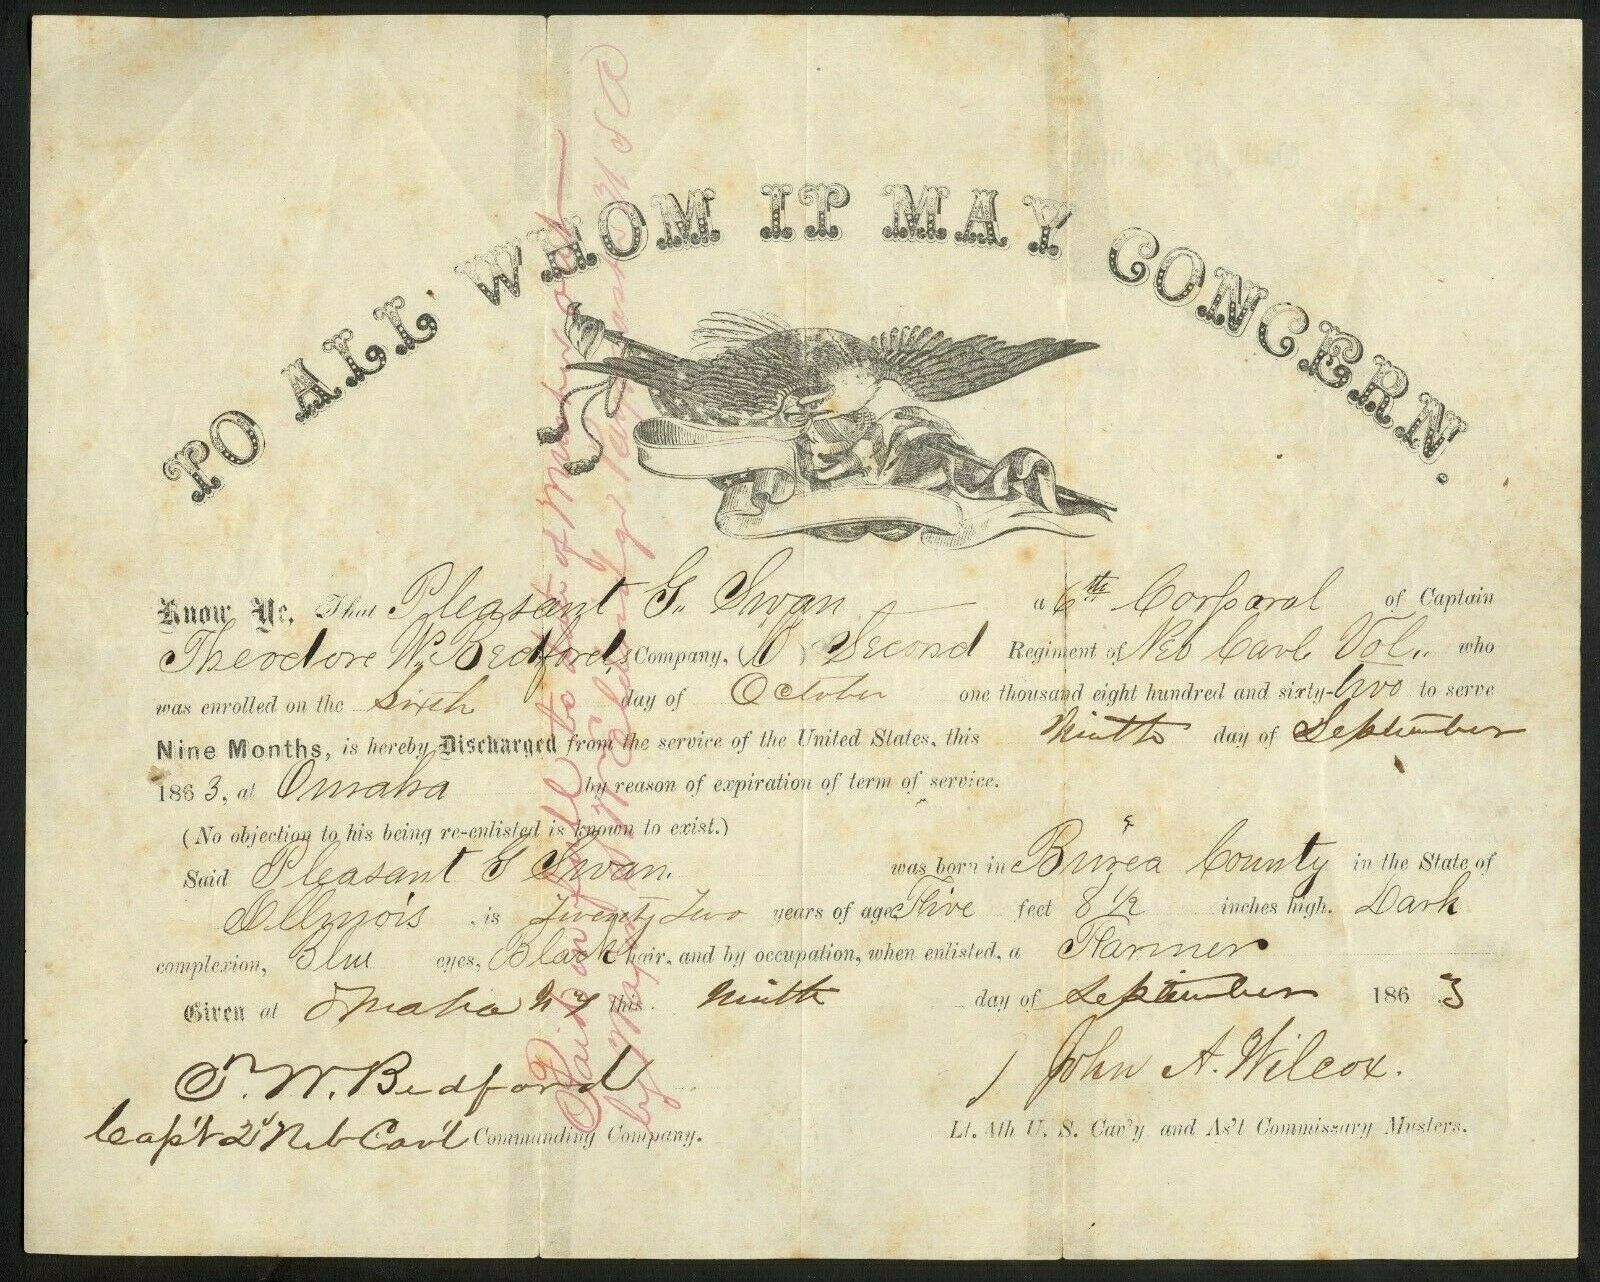 TO ALL WHOM IT MAY CONCERN.
Know Ye, That Pleasant G. Swan a 6th Corporal of Captain
Theodore W. Bedford,s Company, (C) Second Regiment of Neb Cavl Vol.. who
was enrolled on the Sixth day of October one thousand eight hundred and sixty-two to serve
Nine Months, is hereby Discharged from the service of the United States, this Ninth day of September
1863, at Omaha by reason of expiration of term of service.
(No objection to his being re-enlisted is known to exist.)
Said Pleasant G Swan. was born in Burea County in the State of
Illinois is Twenty Two years of age, Five feet 8 1/2 inches high. Dark
complexion, Blue eyes, Black hair, and by occupation, when enlisted, a Farmer
Given at Omaha N T this Ninth day of September 1863
T. W. Bedford
Capt 2d Neb Cav'l Commanding Company.
John A. Wilcox.
Lt. 4th U. S. Cav'y and As't Commissary Musters.
Paid in full to date of Muster out
by Major Paymaster U S A